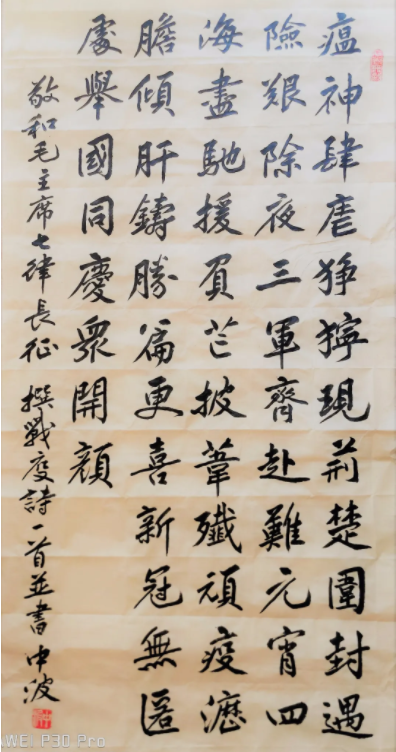 瘟神肆虐猙獰現荊楚圍封遇
險艱除夜三軍齊赴難元宵四
海盡馳援負芒披葦殲頑疫瀝
膽傾肝鑄勝篇更喜新冠無匿
處舉國同慶衆開顔
敬和毛主席七律長征 撰戰疫詩一首並書 中波
AWEI P30 Pro